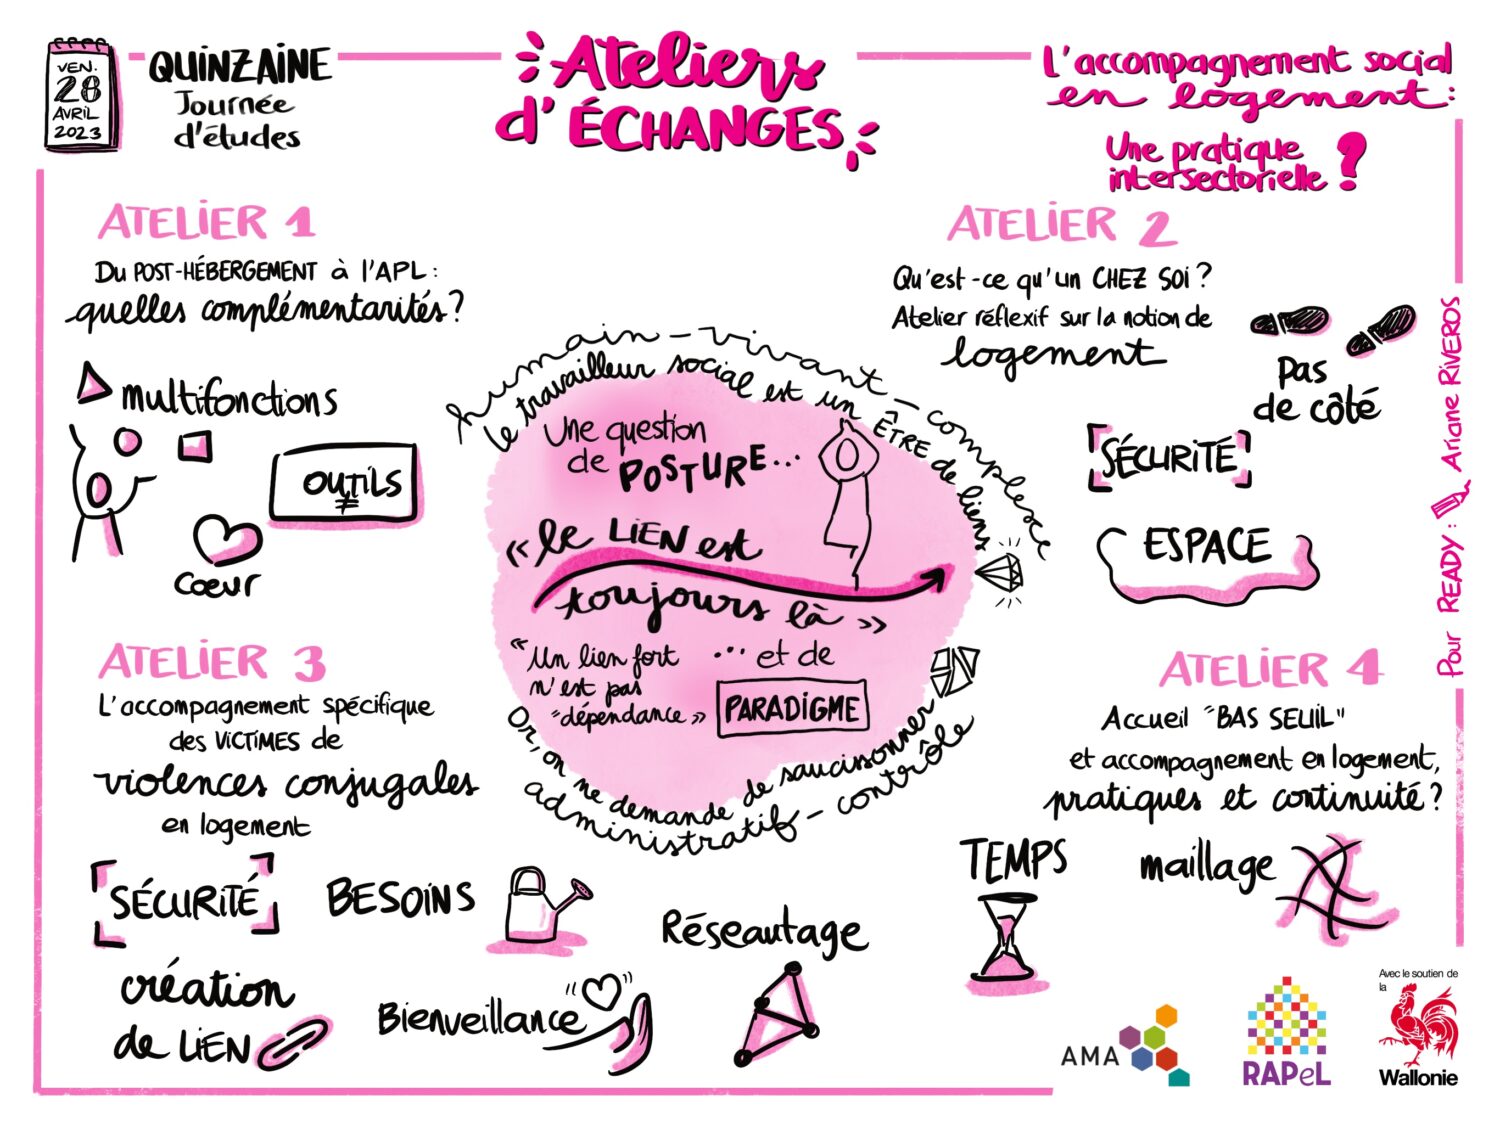 VEN.
28
AVRIL
2023
QUINZAINE
Journée
d'études
Ateliers
d'ÉCHANGES
L'accompagnement social
en logement :
Une pratique
intersectorielle ?
ATELIER 1
Du POST-HÉBERGEMENT à l'APL :
quelles complémentarités ?
multifonctions
OUTILS
≠
cœur
ATELIER 2
Qu'est-ce qu'un CHEZ SOI ?
Atelier réflexif sur la notion de
logement
Pas
de côté
SÉCURITÉ
ESPACE
humain - vivant - complexe
le travailleur social est un ÊTRE de liens
Une question
de POSTURE...
« le LIEN est
toujours là »
« Un lien fort
n'est pas
"dépendance »
... et de
PARADIGME
Or, on ne demande de saucissonner
administratif - contrôle
ATELIER 3
L'accompagnement spécifique
des VICTIMES de
violences conjugales
en logement
SÉCURITÉ
BESOINS
création
de LIEN
Bienveillance
Réseautage
ATELIER 4
Accueil "BAS SEUIL"
et accompagnement en logement,
pratiques et continuité ?
TEMPS
maillage
Pour READY : Ariane RIVEROS
AMA
RAPeL
Avec le soutien de
la
Wallonie